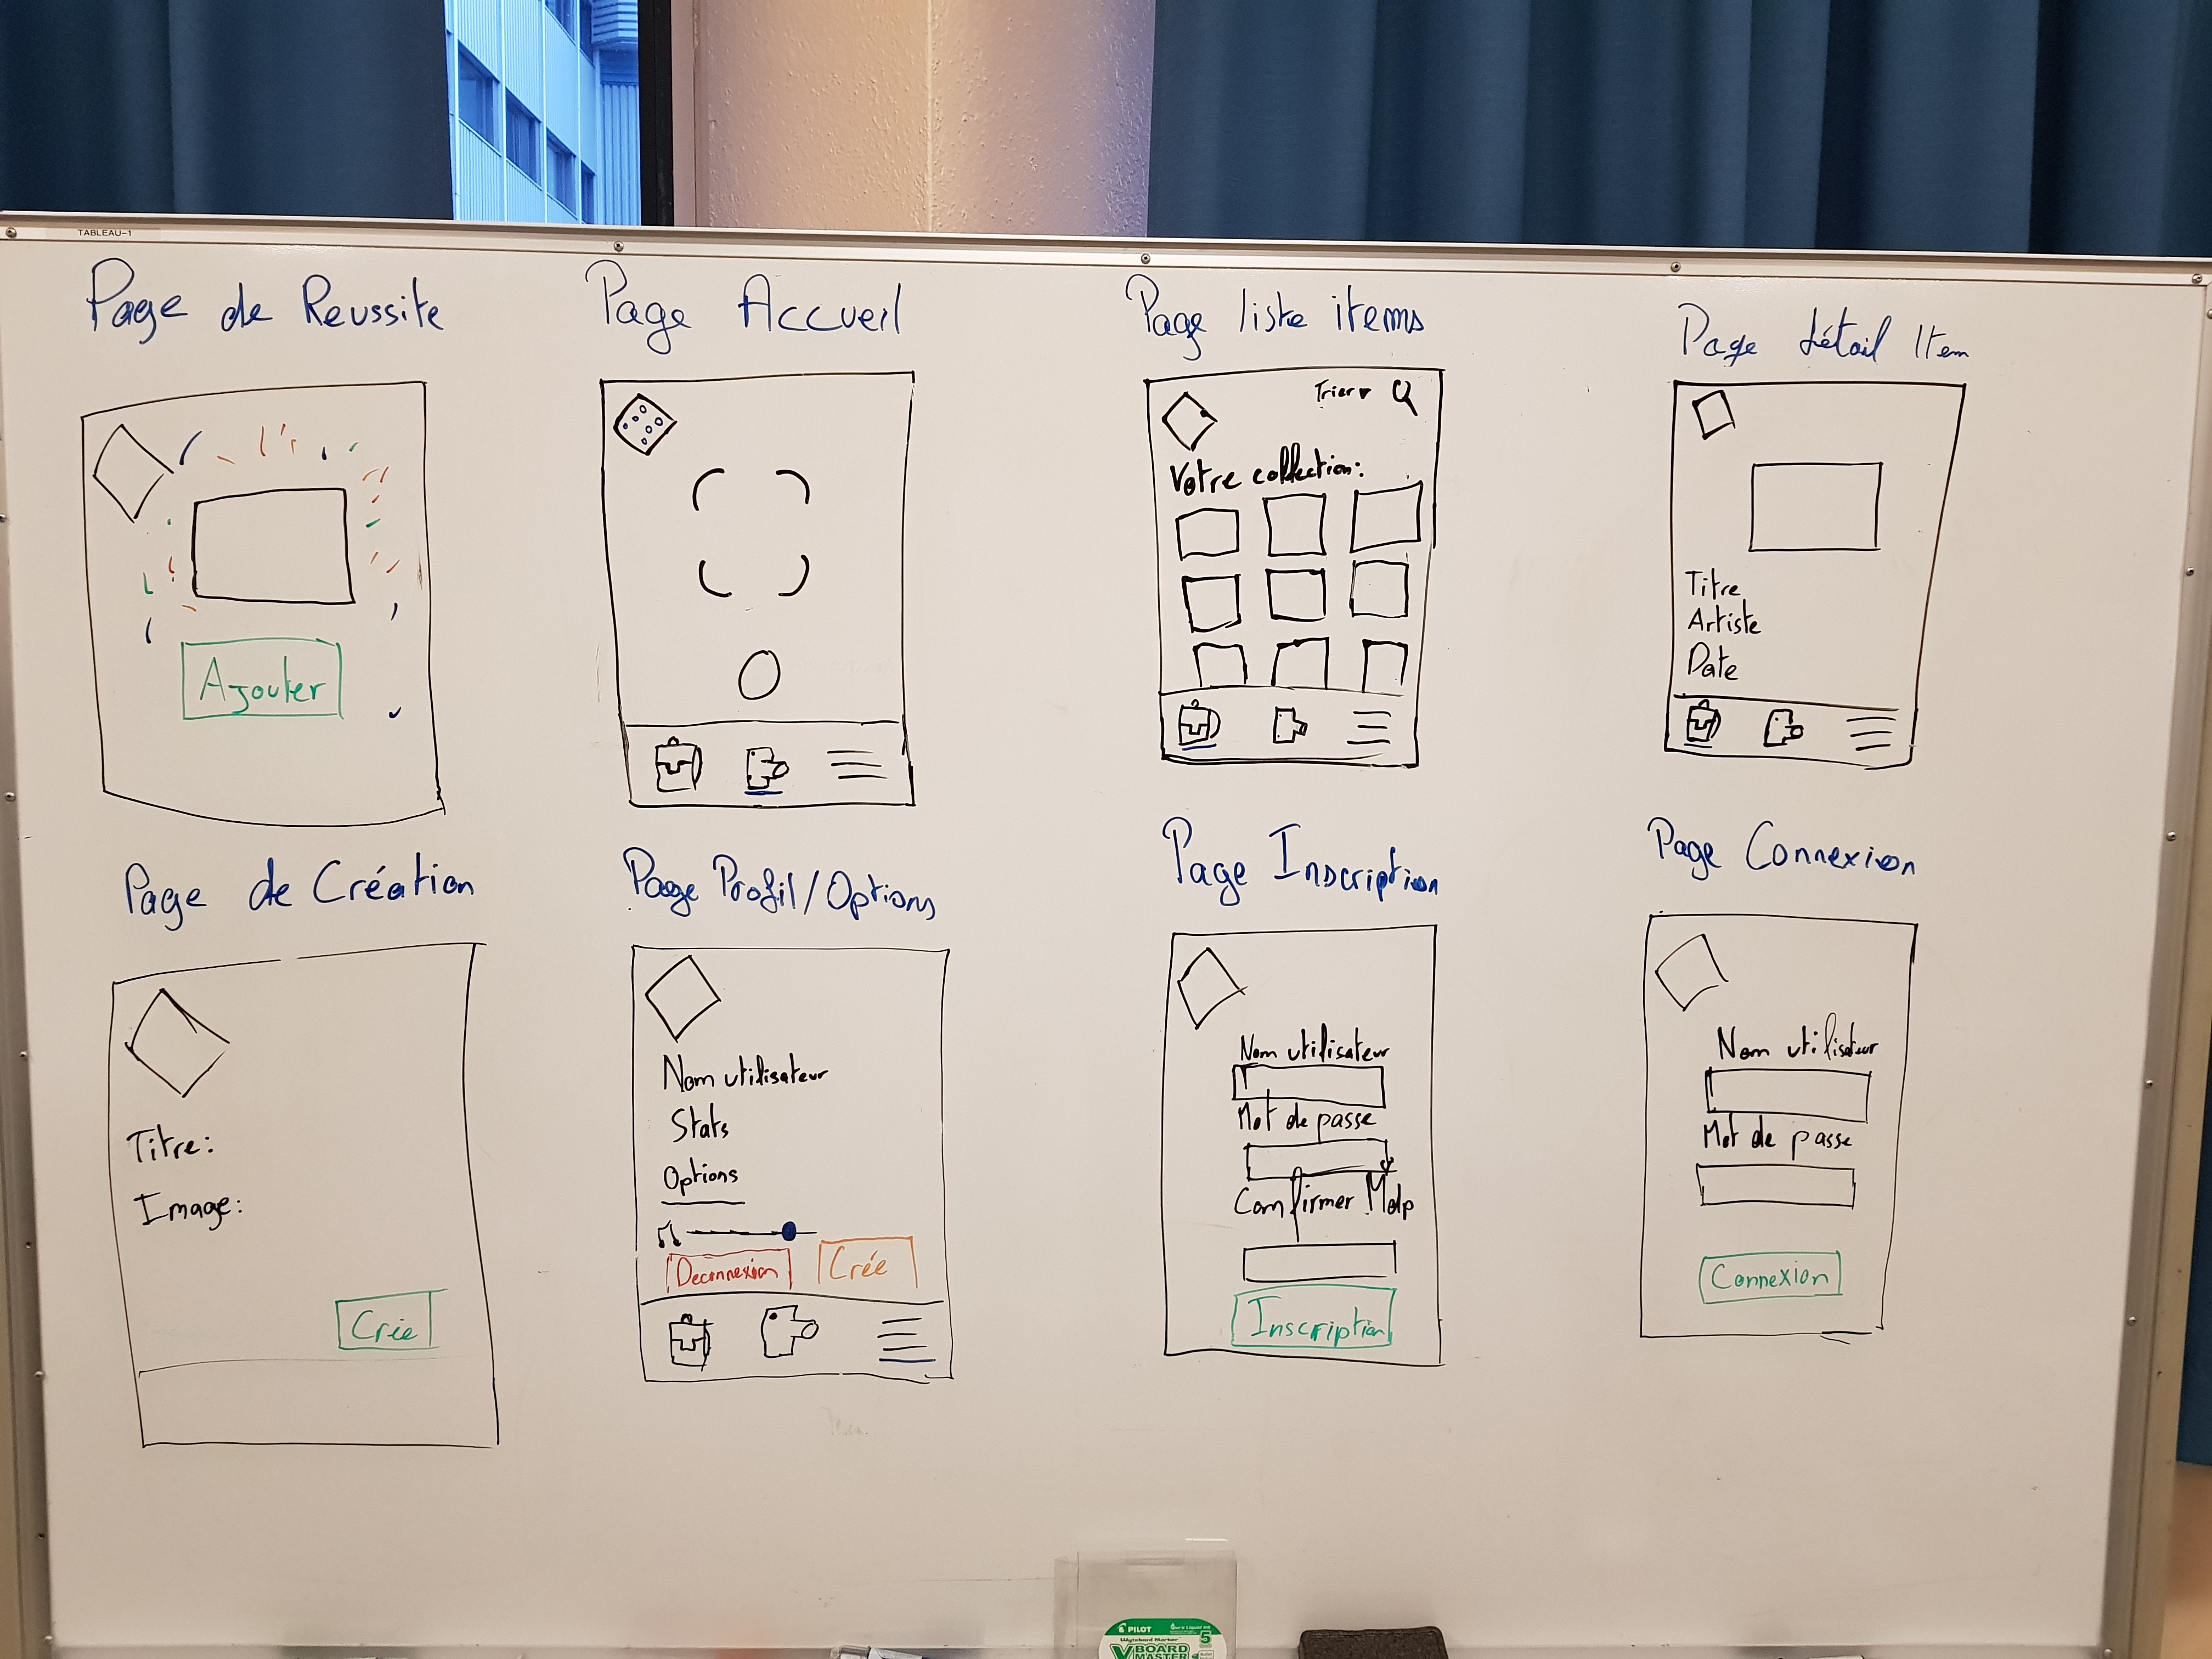 TABLEAU-1
Page de Reussite
Ajouter
Page Accueil
Page liste items
Trier
Votre collection:
Page détail Item
Titre
Artiste
Date
Page de Création
Titre:
Image:
Crée
Page Profil/Options
Nom utilisateur
Stats
Options
Deconnexion
Crée
Page Inscription
Nom utilisateur
Mot de passe
Confirmer Mdp
Inscription
Page Connexion
Nom utilisateur
Mot de passe
Connexion
PILOT
Whyteboard Marker
5
V BOARD
MASTER